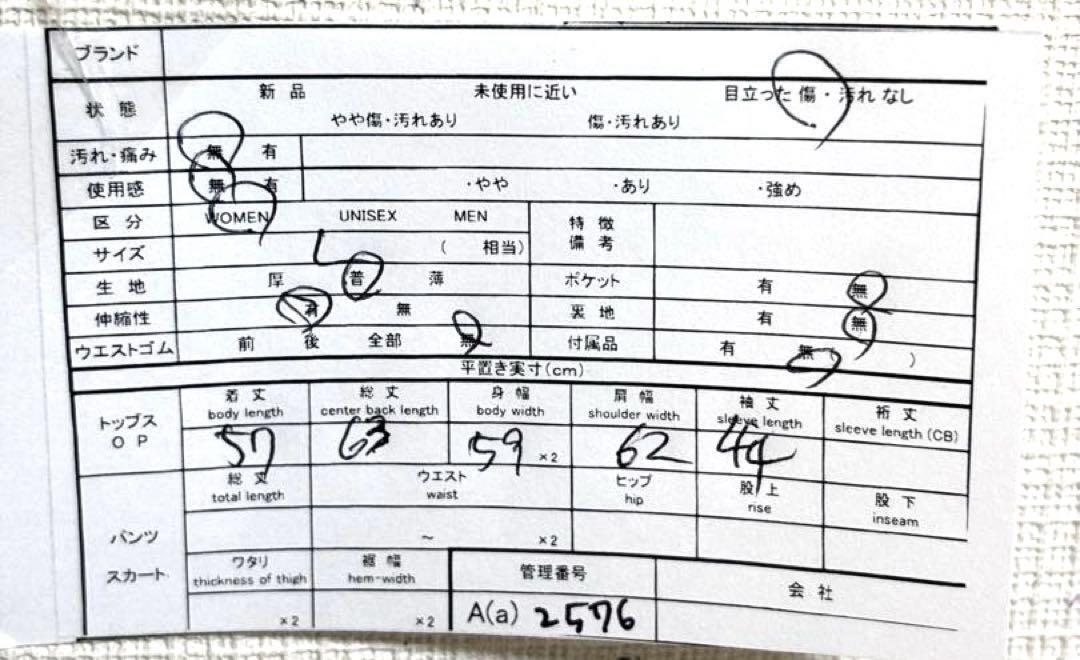 ブランド
状態 新品 未使用に近い 目立った 傷・汚れ なし
やや傷・汚れあり 傷・汚れあり
汚れ・痛み 無 有
使用感 無 有 ・やや ・あり ・強め
区分 WOMEN UNISEX MEN 特徴備考
サイズ L ( 相当)
生地 厚 普 薄 ポケット 有 無
伸縮性 有 無 裏地 有 無
ウエストゴム 前 後 全部 無 付属品 有 無 )
平置き実寸(cm)
トップス OP 着丈 総丈 身幅 肩幅 袖丈 裄丈
body length center back length body width shoulder width sleeve length sleeve length (CB)
57 63 59 ×2 62 44
総丈 ウエスト ヒップ 股上 股下
total length waist hip rise inseam
パンツ ～ ×2
スカート ワタリ 裾幅 管理番号 会社
thickness of thigh hem-width
×2 ×2 A(a) 2576